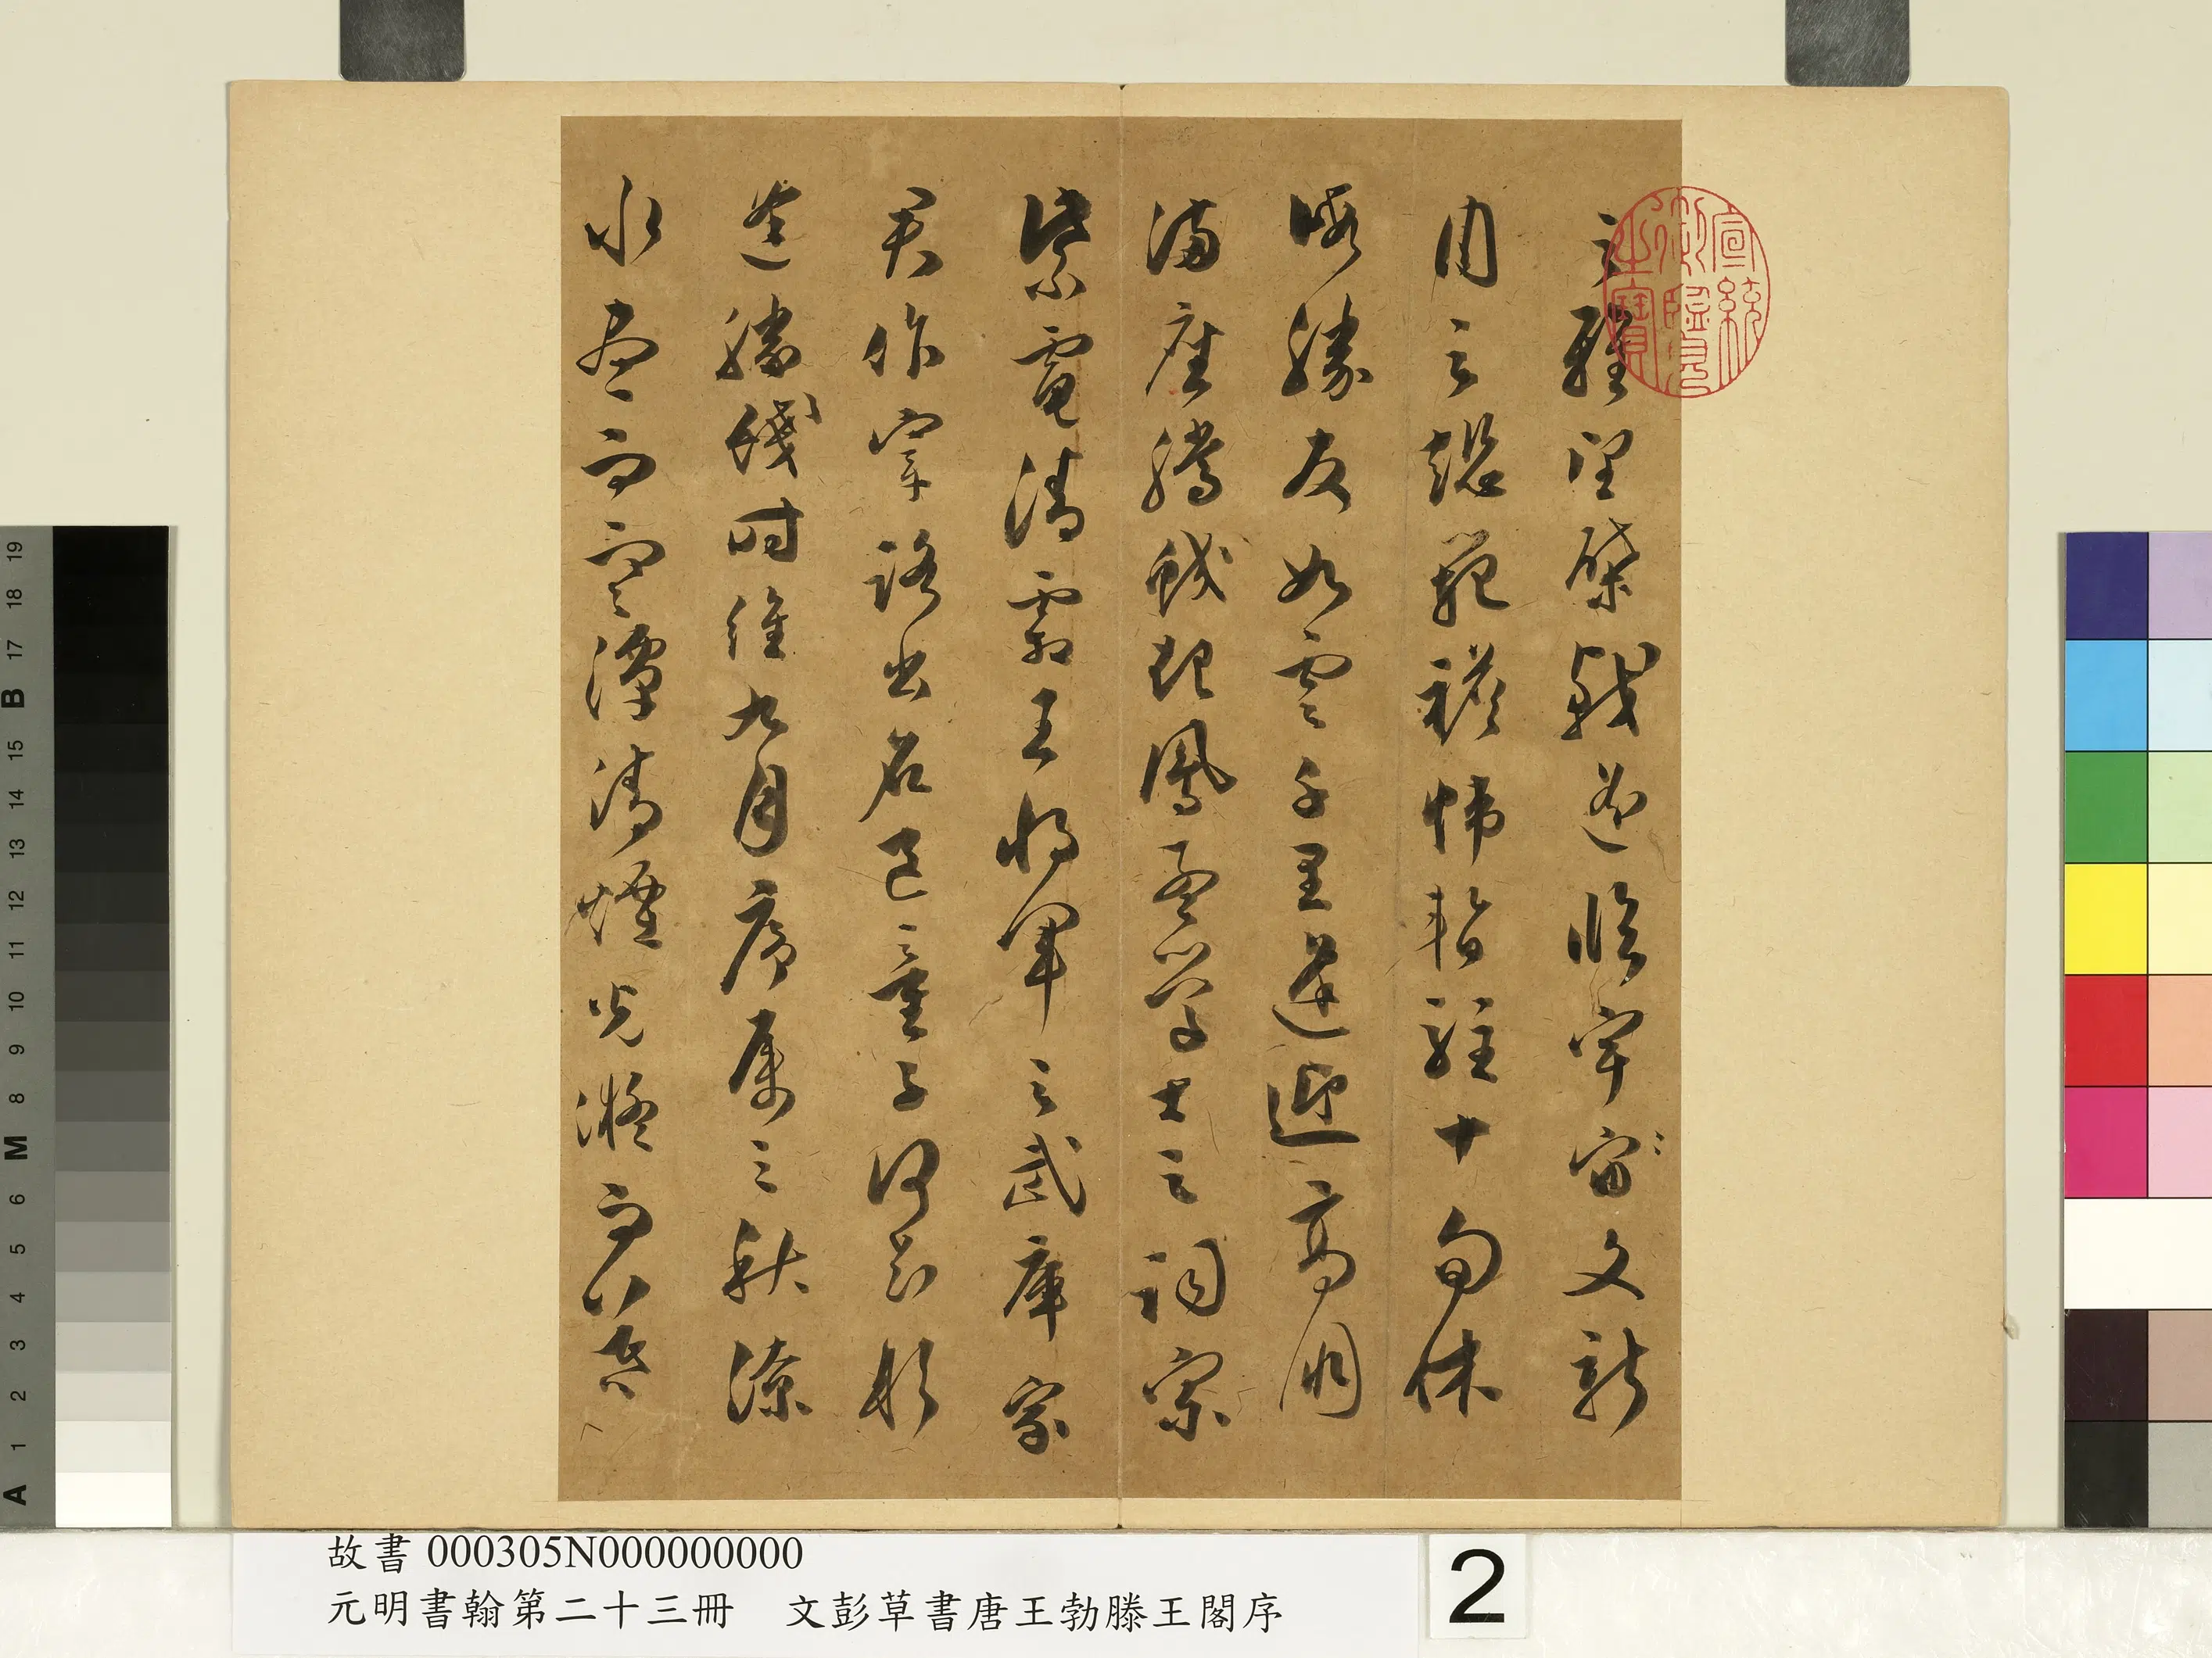 之雅望棨戟遙臨宇宙文新
州之懿範襜帷暫駐十旬休
暇勝友如雲千里逢迎高朋
滿座騰蛟起鳳孟學士之詞宗
紫電清霜王將軍之武庫家
君作宰路出名區童子何知躬
逢勝餞時維九月序屬三秋潦
水盡而寒潭清煙光凝而暮
宣統御覽之寶
故書 000305N000000000
元明書翰第二十三冊 文彭草書唐王勃滕王閣序
2
A 1 2 3 4 5 6 M 8 9 10 11 12 13 14 15 B 17 18 19